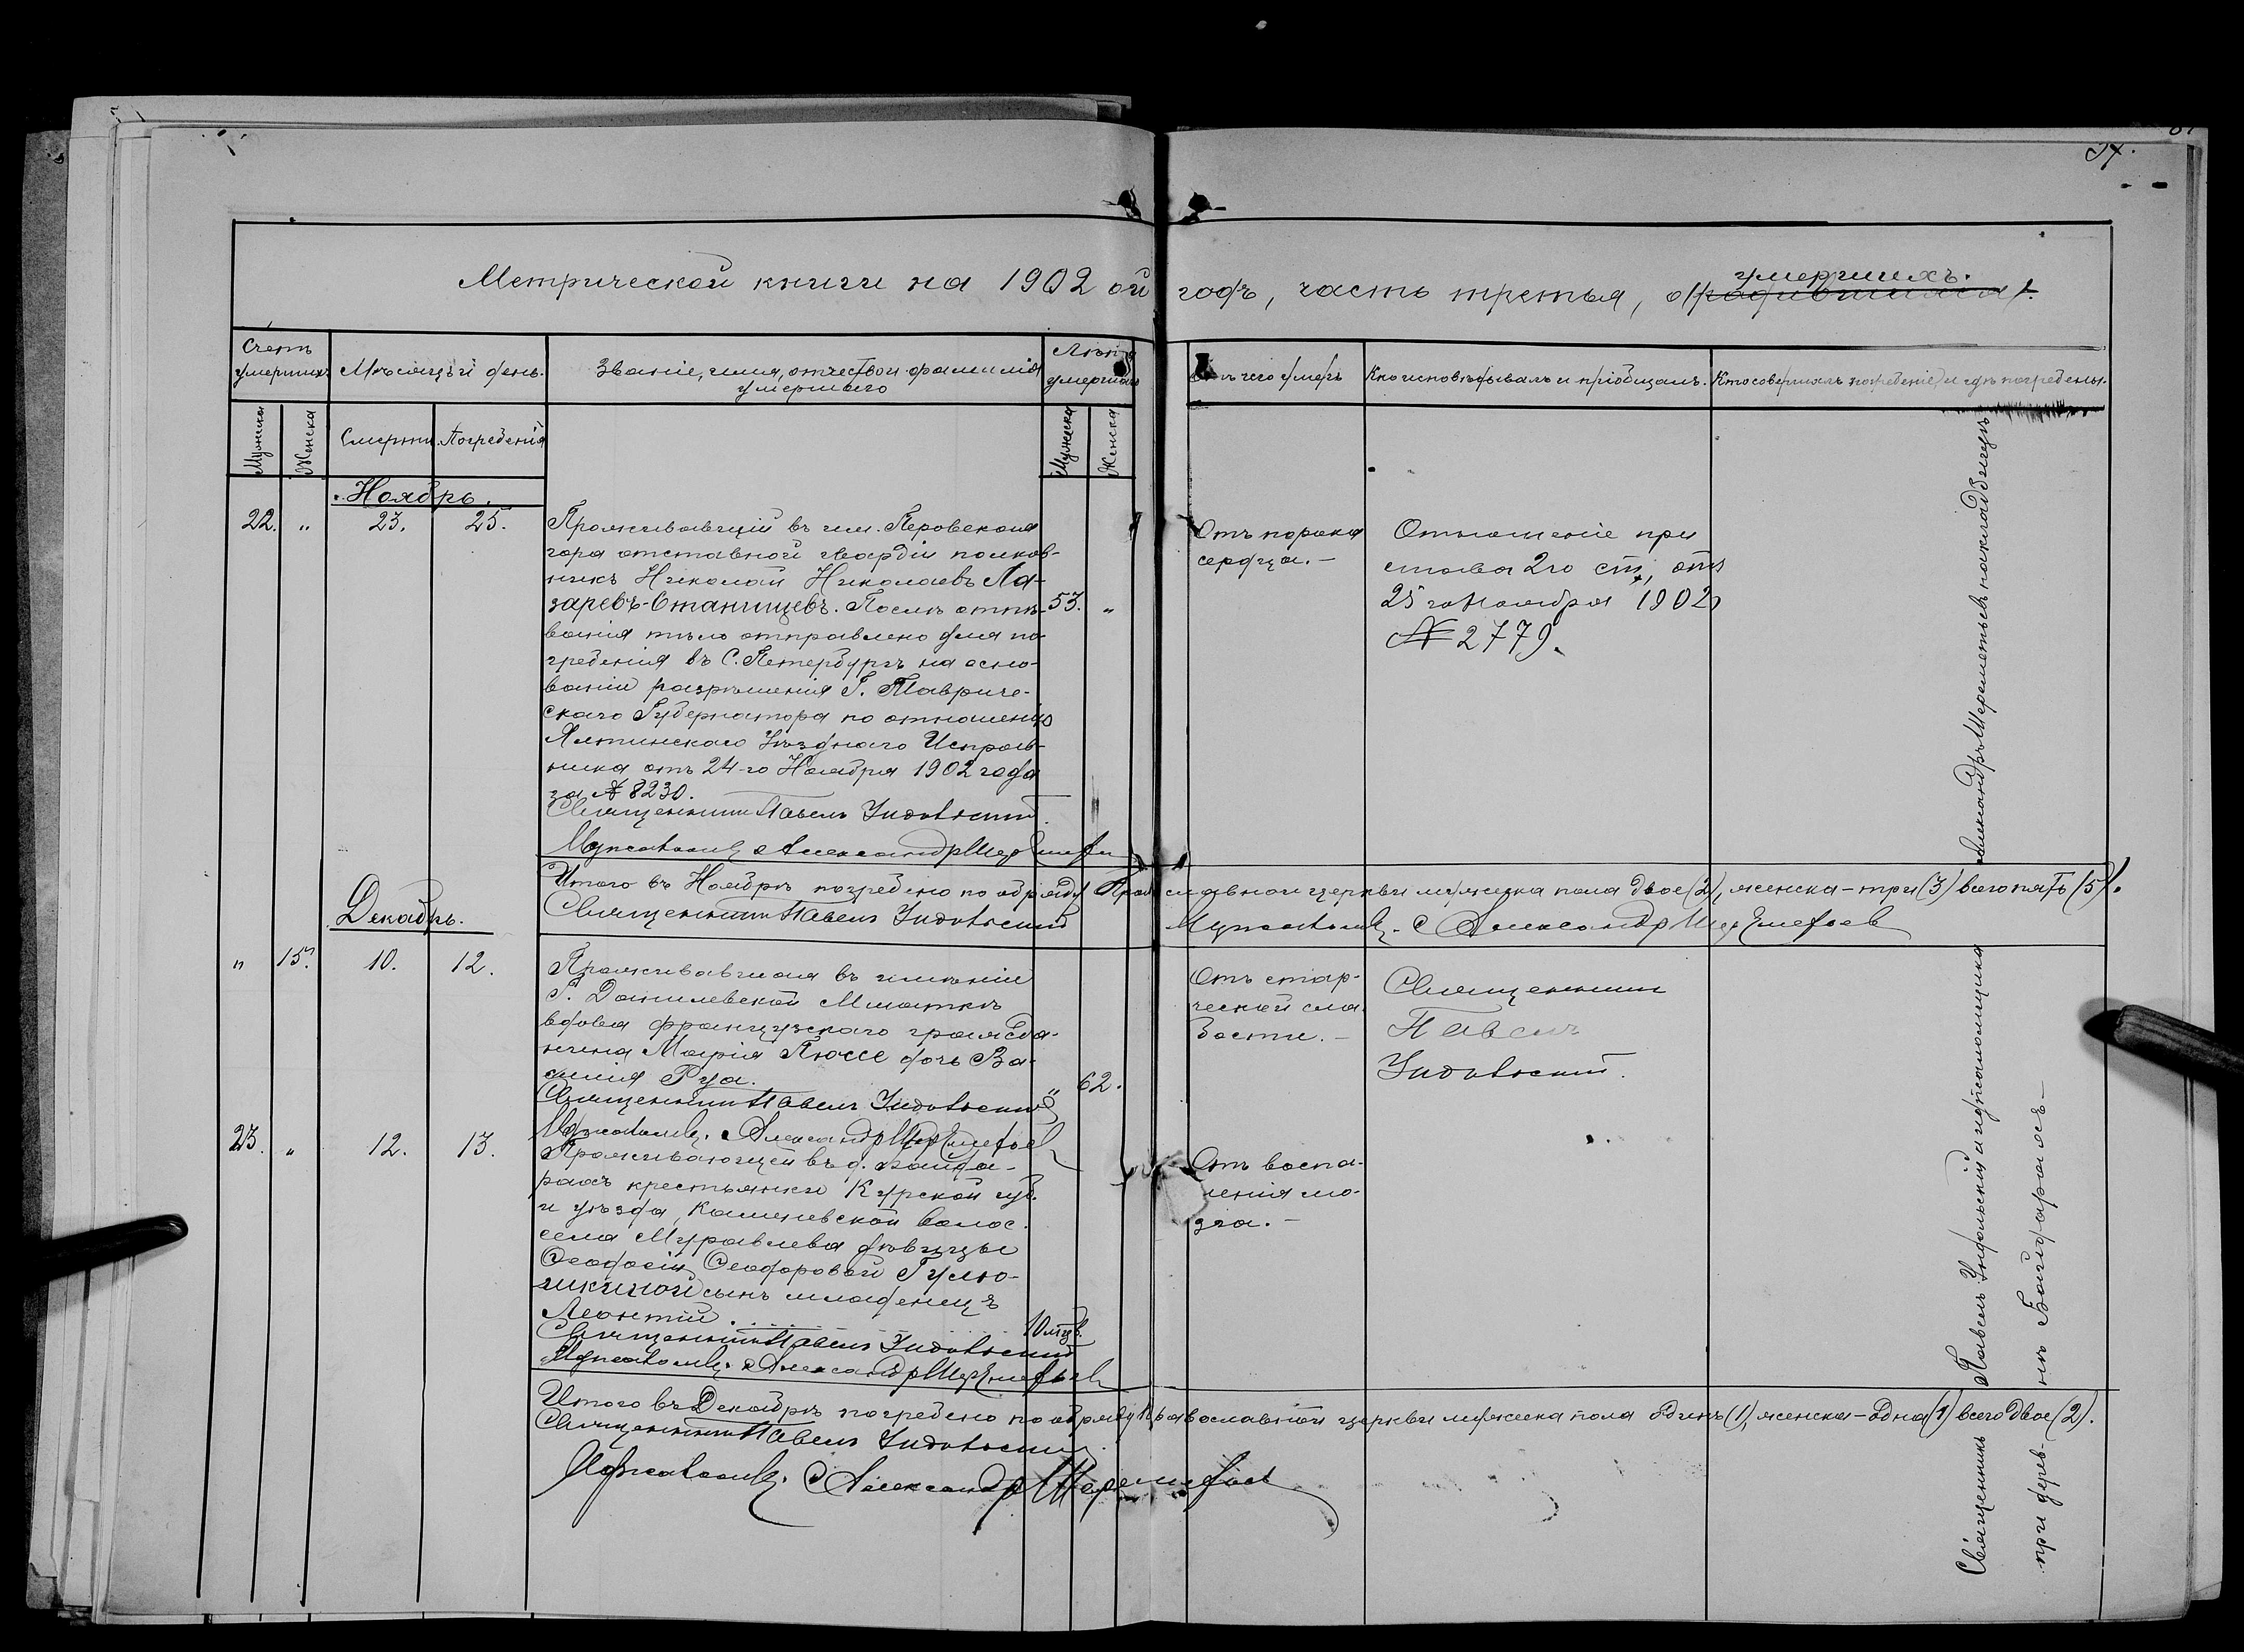 57.
Метрической книги на 1902 ой годъ, часть третья, о умершихъ.
Счетъ умершихъ
Мѣсяцъ и день.
Званіе, имя, отчество и фамилія умершаго
Лѣта умершаго
Отъ чего умеръ
Кто исповѣдывалъ и пріобщалъ.
Кто совершалъ погребеніе и гдѣ погребены.
Мужска
Женска
Смерти.
Погребенія
Мужеска
Женска
Ноябрь.
22.
"
23.
25.
Проживавшій въ им. Перовскаго
гора отставной гвардіи полков-
никъ Николай Николаевъ Ла-
заревъ-Станищевъ. Послѣ отпѣ-
ванія тѣло отправлено для по-
гребенія въ С. Петербургъ на осно-
ваніи разрѣшенія Г. Тавриче-
скаго Губернатора по отношенію
Ялтинскаго Уѣзднаго Исправ-
ника отъ 24-го Ноября 1902 года
за № 8230.
Священникъ Павелъ Ундольскій.
Псаломщ. Александръ Шереметьев
53.
"
Отъ порока
сердца.-
Отношеніе при
става 2го ст., отъ
25 го Ноября 1902
№ 2779.
Итого въ Ноябрѣ погребено по обряду Православной церкви мужеска пола двое (2), женска-три (3) всего пять (5).
Священникъ Павелъ Ундольскій
Псаломщ. Александръ Шереметьев
Декабрь.
"
15.
10.
12.
Проживавшая въ имѣніи
Г. Данилевской Мшаткѣ
вдова французскаго гражда-
нина Марія Плюссе дочь Ва-
силія Руа.
Священникъ Павелъ Ундольскій
Псаломщ. Александръ Шереметьев
"
62.
Отъ стар-
ческой сла-
бости.-
Священникъ
Павелъ
Ундольскій.
23.
"
12.
13.
Проживающей въ д. Байда-
рахъ крестьянки Курской губ.
и уѣзда, Каменевской волос.
села Муравлева дѣвицы
Ѳеодосіи Ѳеодоровой Гулю-
шкиной сынъ младенецъ
Леонтій.
Священникъ Павелъ Ундольскій
Псаломщ. Александръ Шереметьев
10 мцв.
Отъ воспа-
ленія мо-
зга.-
Итого въ Декабрѣ погребено по обряду Православной церкви мужеска пола одинъ (1), женска-одна (1) всего двое (2).
Священникъ Павелъ Ундольскій
Псаломщ. Александръ Шереметьев
Священникъ Павелъ Ундольскій и псаломщикъ Александръ Шереметьевъ на кладбищѣ
при дерев-нѣ Байдарахъ-